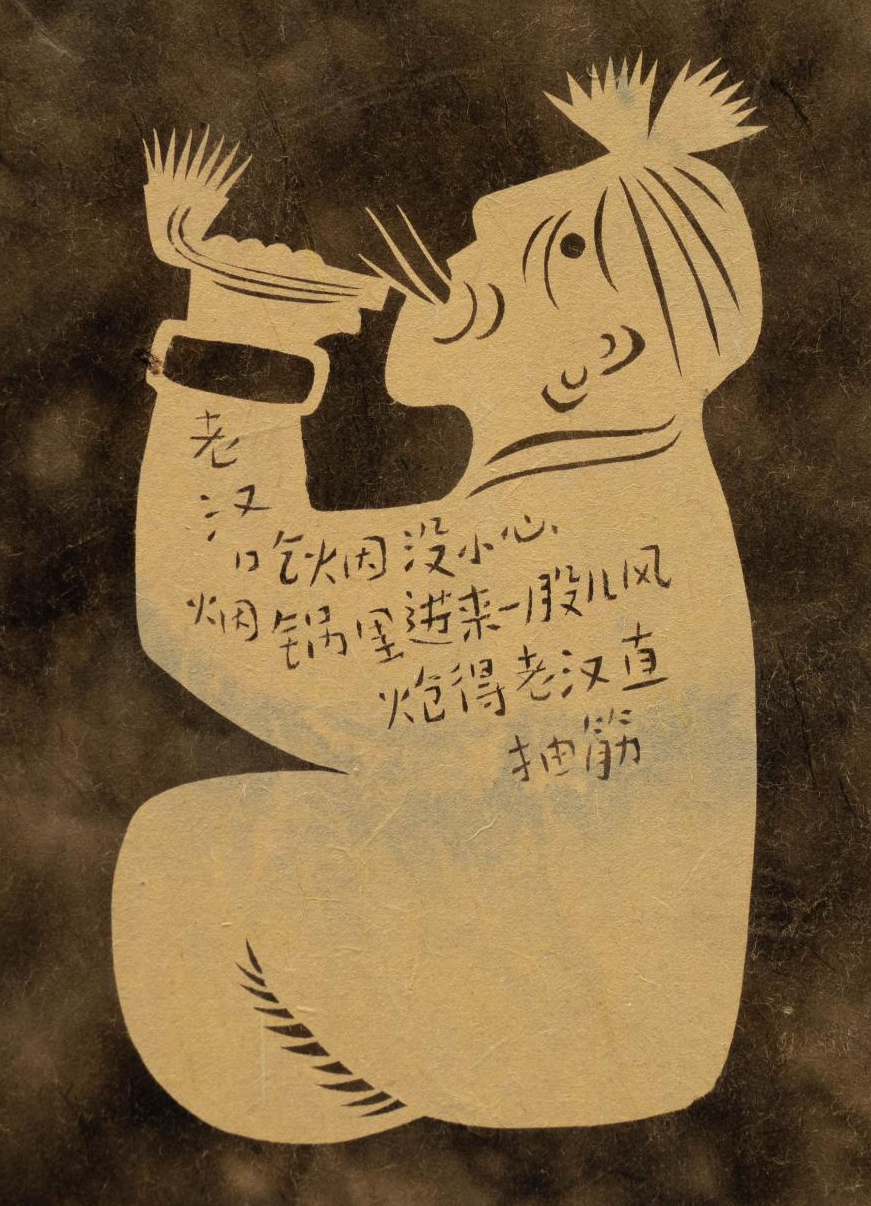 老
汉
吃烟因没小心
烟锅里进来一股儿风
炝得老汉直
抽筋